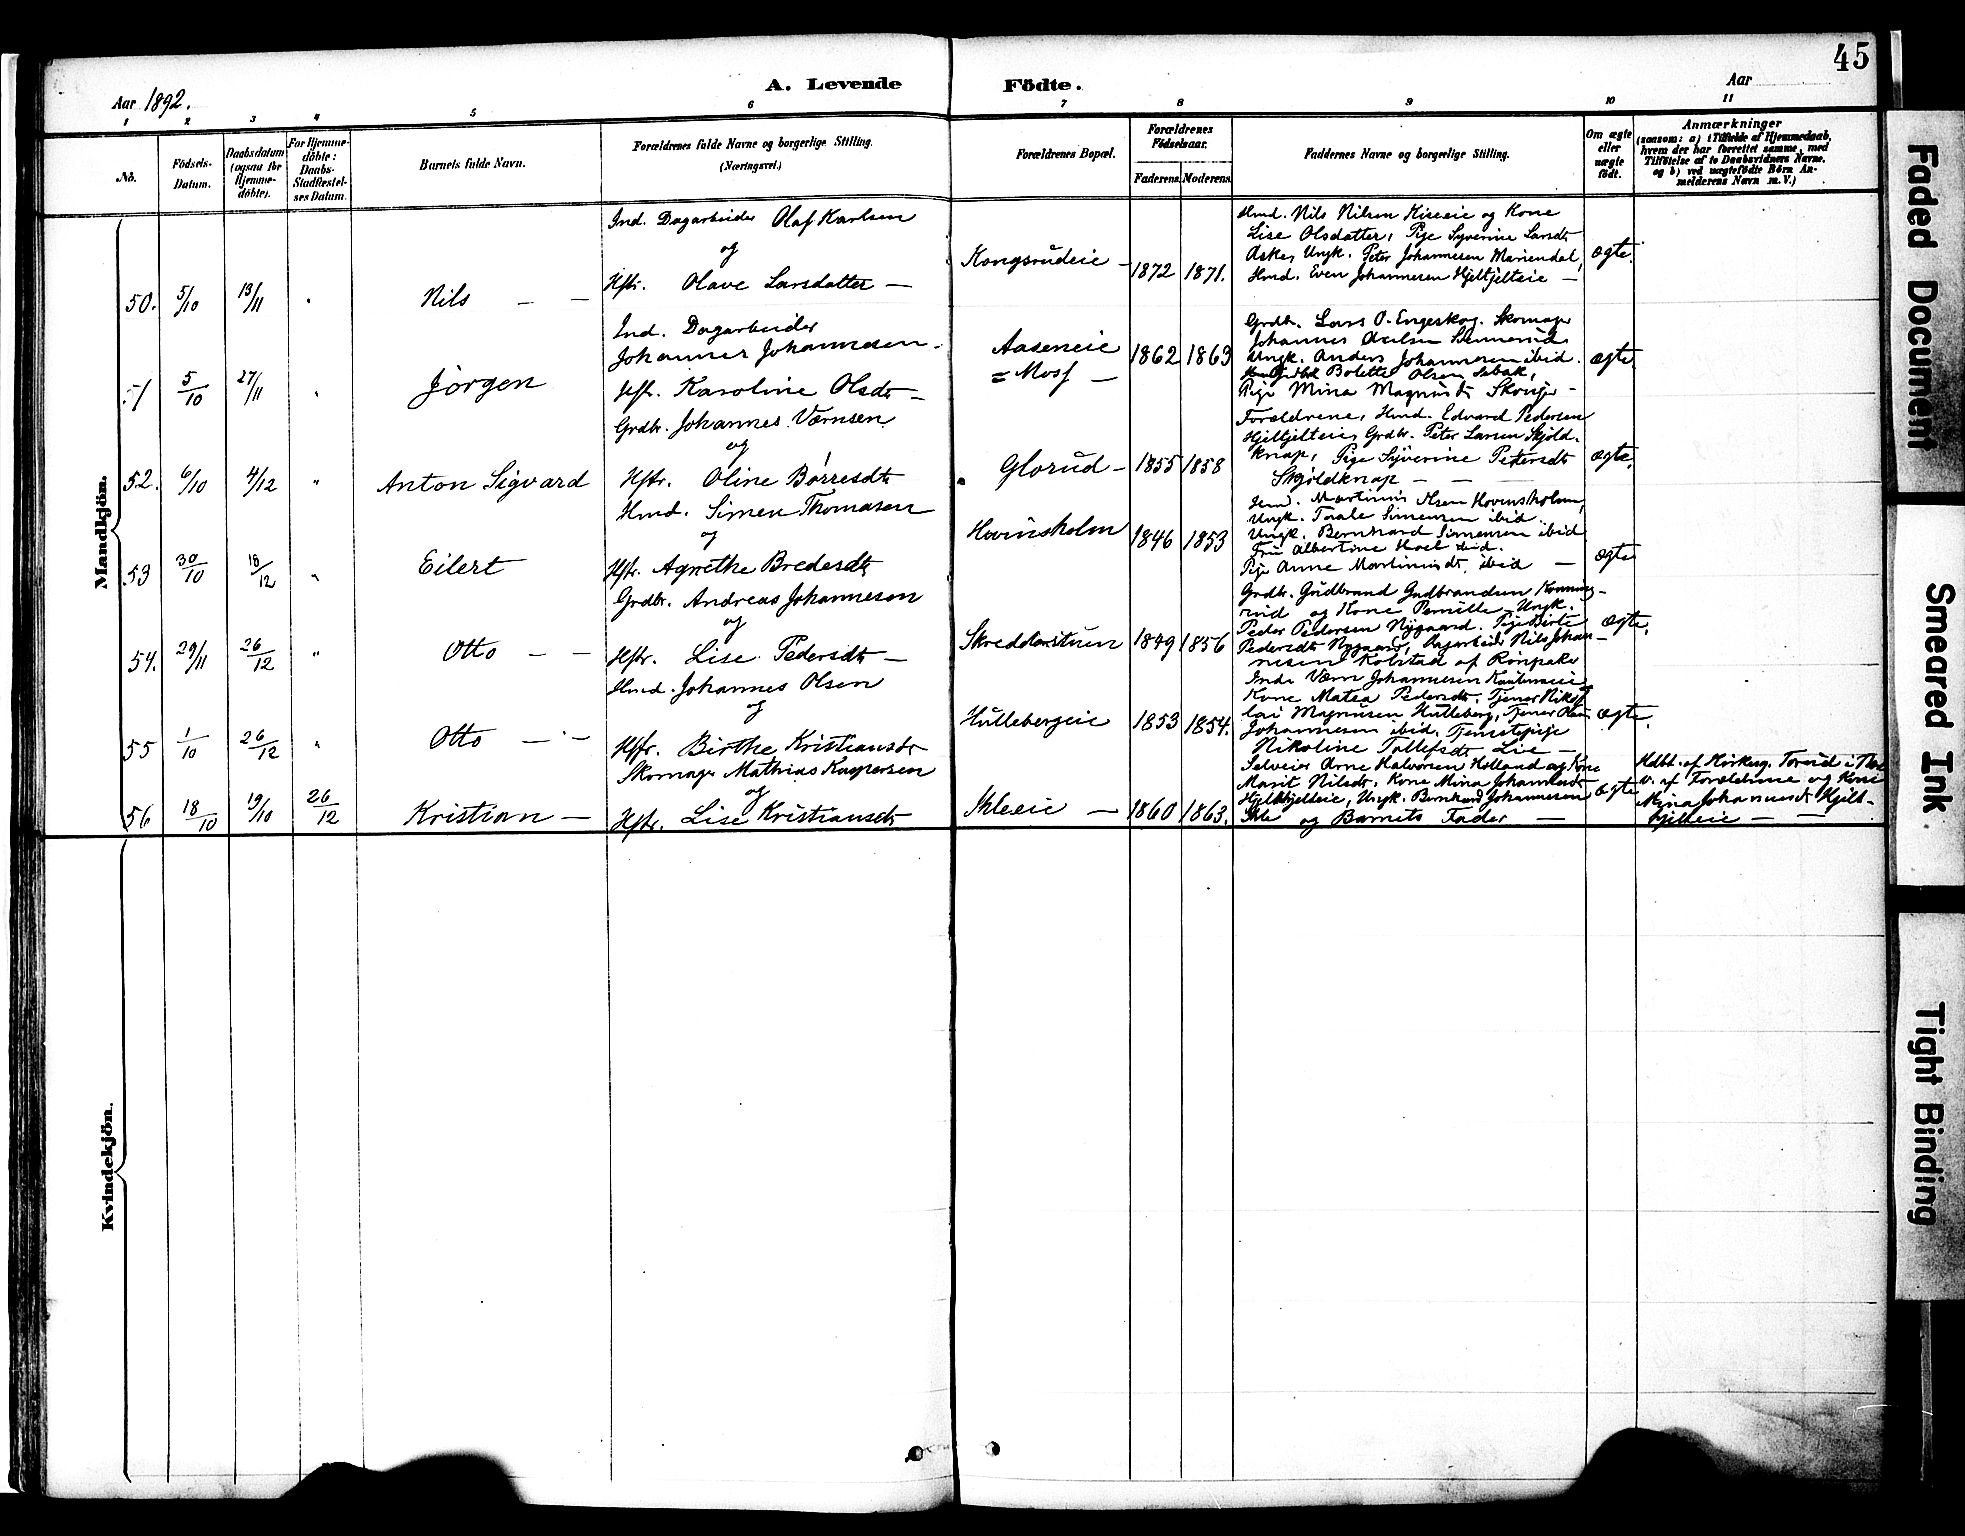 45
Aar 1892.
A. Levende Födte.
Aar
1 2 3 4 5 6 7 8 9 10 11
No.
Födsels-Datum.
Daabsdatum (ogsaa for Hjemme-döbte).
For Hjemme-döbte: Daabs-Stadfæstel-ses Datum.
Barnets fulde Navn.
Forældrenes fulde Navne og borgerlige Stilling.
(Næringsvei.)
Forældrenes Bopæl.
Forældrenes Födselsaar.
Faderens. Moderens.
Faddernes Navne og borgerlige Stilling.
Om ægte eller uægte födt.
Anmærkninger
(saasom: a) i Tilfælde af Hjemmedaab,
hvem der har forrettet samme, med
Tilföielse af to Daabsvidners Navne,
og b) ved uægtefödte Börn An-
melderens Navn m. V.)
Mandkjön.
50. 5/10 13/11 " Nils — —
Ind. Dagarbeider Olaf Karlsen
og
Hstr. Olave Larsdatter —
Kongsrudeie — 1872 1871.
Hmd. Nils Nilsen Kiseeie og Kone
Lise Olsdatter, Pige Syverine Larsdt
Aske, Ungk. Peter Johannesen Mariendal,
Hmd. Even Johannesen Hjeltjelteie —
ægte.
51 5/10 27/11 " Jörgen
Ind. Dagarbeider
Johannes Johannesen
Hstr. Karoline Olsdt —
Aaseneie
= Mosf —
1862 1863
Grdbr. Lars O. Engeskog. Skomager
Johannes
Ungk. Anders Johannesen ibid.
Bolette Olsen
Pige Mina Magnusdt
ægte.
52. 6/10 4/12 " Anton Sigvard
Grdbr. Johannes Værnsen
og
Hstr. Oline Børresdt
Glorud — 1855 1858
Forældrene, Hmd. Edvard Pedersen
Hjeltjelteie, Grdbr. Peter Larsen Skjöld-
knap, Pige Syverine Petersdt
Skjöldknap — — —
ægte.
53 30/10 18/12 " Eilert
Hmd. Simen Thomasen
og
Hstr. Agnethe Bredesdt
Hovinsholm 1846 1853
Martinus Olsen Hovinsholm,
Ungk. Simensen ibid.
Ungk. Bernhard Simensen ibid
Fru Albertine Hoel ibid.
Pige Anne Martinusdt. ibid —
ægte
54. 29/11 26/12 " Otto — —
Grdbr. Andreas Johannesen
og
Hstr. Lise Pedersdt —
Skredderstuen 1849 1856
Grdbr. Gudbrand Gudbrandsen
rud og Kone Pernille — Ungk.
Peder Pedersen Nygaard. Pige Birte
Pedersdt Nygaard, Dagarbeider Nils Johan-
nesen Kolstad af
ægte.
55 1/10 26/12 " Otto — —
Hmd. Johannes Olsen
og
Hstr. Birthe Kristiansdt
Hullebergeie 1853 1854.
Inds. Værn Johannesen
Kone Matea Pedersdt. Tjener Niko-
lai Magnusen Hulleberg, Tjener
Johannesen ibid. Tjenestepige
Nikoline Tollefsdt Lie —
ægte.
56 18/10 19/10 26/12 Kristian —
Skomager Mathias Kaspersen
og
Hstr. Lise Kristiansdt
Skleeie — 1860 1863.
Selveier Arne Halvorsen Holland og Kone
Marit Nilsdt. Kone Mina Johannesdt
Hjeltjelteie, Ungk. Bernhard Johannesen
Skle og Barnets Fader —
ægte
Hdbt. af Kirkesg. Torud i
v. af Forældrene og Kone
Mina Johannesdt Hjelt-
jelteie — —
Kvindekjön.
Faded Document
Smeared Ink
Tight Binding